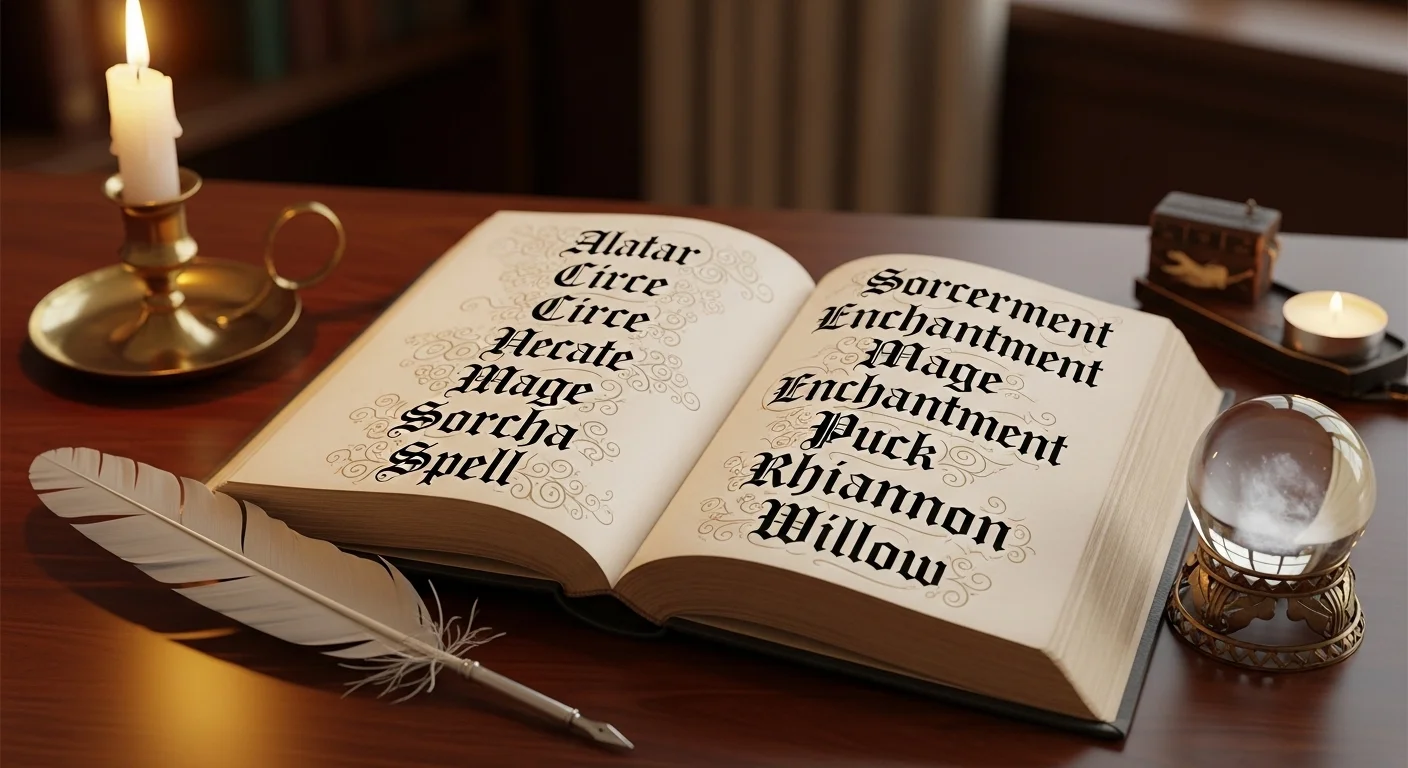 Alatar
Circe
Circe
Hecate
Mage
Sorcha
Spell
Sorcerment
Enchantment
Mage
Enchantment
Puck
Rhiannon
Willow